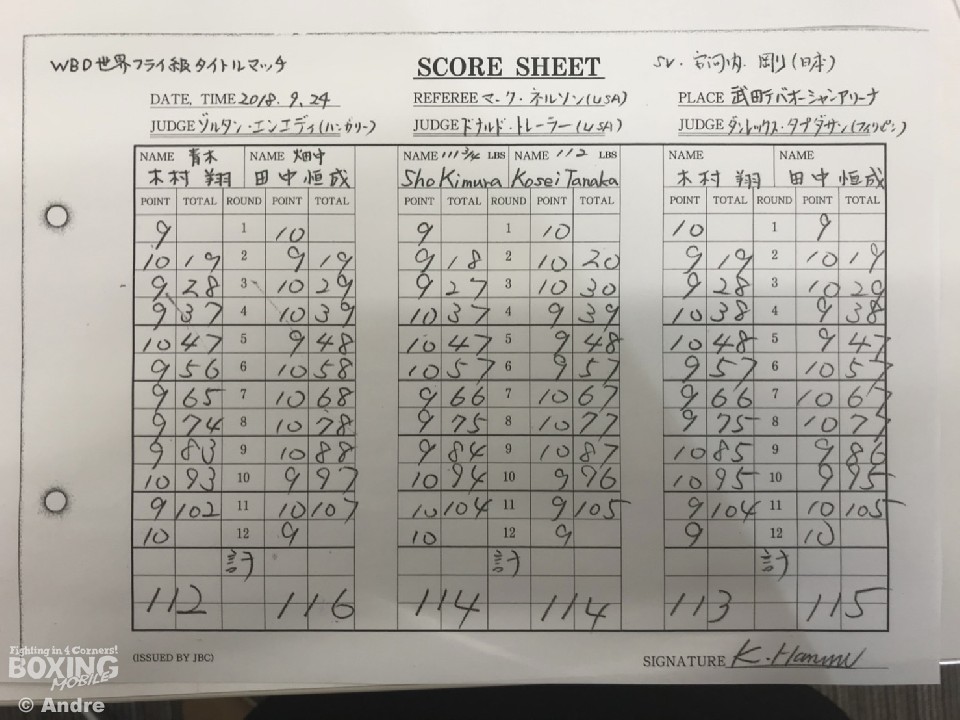 WBO世界フライ級タイトルマッチ SCORE SHEET SV. 安河内 剛(日本)
DATE, TIME 2018. 9. 24 REFEREE マーク・ネルソン(USA) PLACE 武田テバオーシャンアリーナ
JUDGE ゾルタン・エンエディ(ハンガリー) JUDGE ドナルド・トレーラー(USA) JUDGE ダンレックス・タプダサン(フィリピン)
NAME 青木 NAME 畑中 NAME 111 3/4 LBS NAME 112 LBS NAME NAME
木村 翔 田中 恒成 Sho Kimura Kosei Tanaka 木村 翔 田中 恒成
POINT TOTAL ROUND POINT TOTAL POINT TOTAL ROUND POINT TOTAL POINT TOTAL ROUND POINT TOTAL
9 1 10 9 1 10 10 1 9
10 19 2 9 19 9 18 2 10 20 9 19 2 10 19
9 28 3 10 29 9 27 3 10 30 9 28 3 10 29
9 37 4 10 39 10 37 4 9 39 10 38 4 9 38
10 47 5 9 48 10 47 5 9 48 10 48 5 9 47
9 56 6 10 58 10 57 6 9 57 9 57 6 10 57
9 65 7 10 68 9 66 7 10 67 9 66 7 10 67
9 74 8 10 78 9 75 8 10 77 9 75 8 10 77
9 83 9 10 88 9 84 9 10 87 10 85 9 9 86
10 93 10 9 97 10 94 10 9 96 10 95 10 9 95
9 102 11 10 107 10 104 11 9 105 9 104 11 10 105
10 12 9 10 12 9 9 12 10
計 計 計
112 116 114 114 113 115
(ISSUED BY JBC) SIGNATURE
Fighting in 4 Corners!
BOXING
MOBILE
© Andre